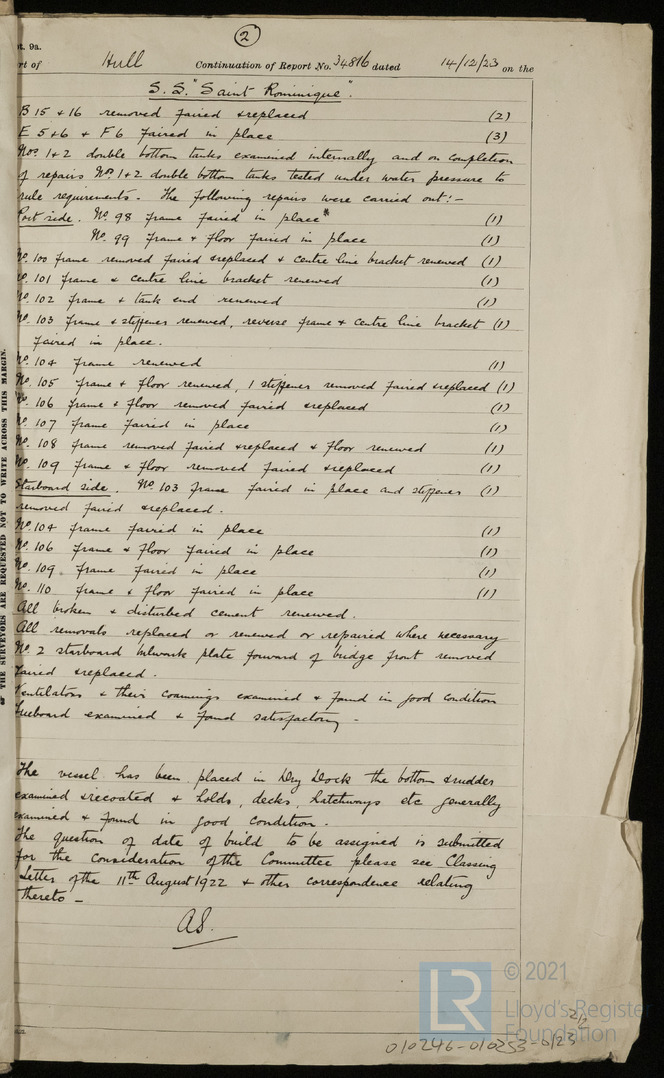 2
pt. 9a.
rt of Hull Continuation of Report No. 34816 dated 14/12/23 on the
S.S. "Saint Rominique".
B 15 + 16 removed faired & replaced (2)
E 5+6 & F6 faired in place (3)
Nos. 1+2 double bottom tanks examined internally and on completion
of repairs Nos. 1+2 double bottom tanks tested under water pressure to
rule requirements. The following repairs were carried out:-
Port side. No. 98 frame faired in place (1)
No. 99 frame & floor faired in place (1)
No. 100 frame removed faired & replaced & centre line bracket renewed (1)
No. 101 frame & centre line bracket renewed (1)
No. 102 frame & tank end renewed (1)
No. 103 frame & stiffener renewed, reverse frame & centre line bracket (1)
faired in place.
No. 104 frame renewed (1)
No. 105 frame & floor renewed, 1 stiffener removed faired & replaced (1)
No. 106 frame & floor removed faired & replaced (1)
No. 107 frame faired in place (1)
No. 108 frame removed faired & replaced & floor renewed (1)
No. 109 frame & floor removed faired & replaced (1)
Starboard side. No. 103 frame faired in place and stiffener (1)
removed faired & replaced.
No. 104 frame faired in place (1)
No. 106 frame & floor faired in place (1)
No. 109 frame faired in place (1)
No. 110 frame & floor faired in place (1)
All broken & disturbed cement renewed.
All removals replaced or renewed or repaired where necessary
No. 2 starboard bulwark plate forward of bridge front removed
faired & replaced.
Ventilators & their coamings examined & found in good condition
Freeboard examined & found satisfactory -
The vessel has been placed in Dry Dock the bottom & rudder
examined & recoated & holds, decks, hatchways etc generally
examined & found in good condition.
The question of date of build to be assigned is submitted
for the consideration of the Committee please see Classing
Letter of the 11th August 1922 & other correspondence relating
thereto -
AS.
THE SURVEYORS ARE REQUESTED NOT TO WRITE ACROSS THIS MARGIN.
LR
© 2021
Lloyd's Register
Foundation
2/2
010246-010253-0123